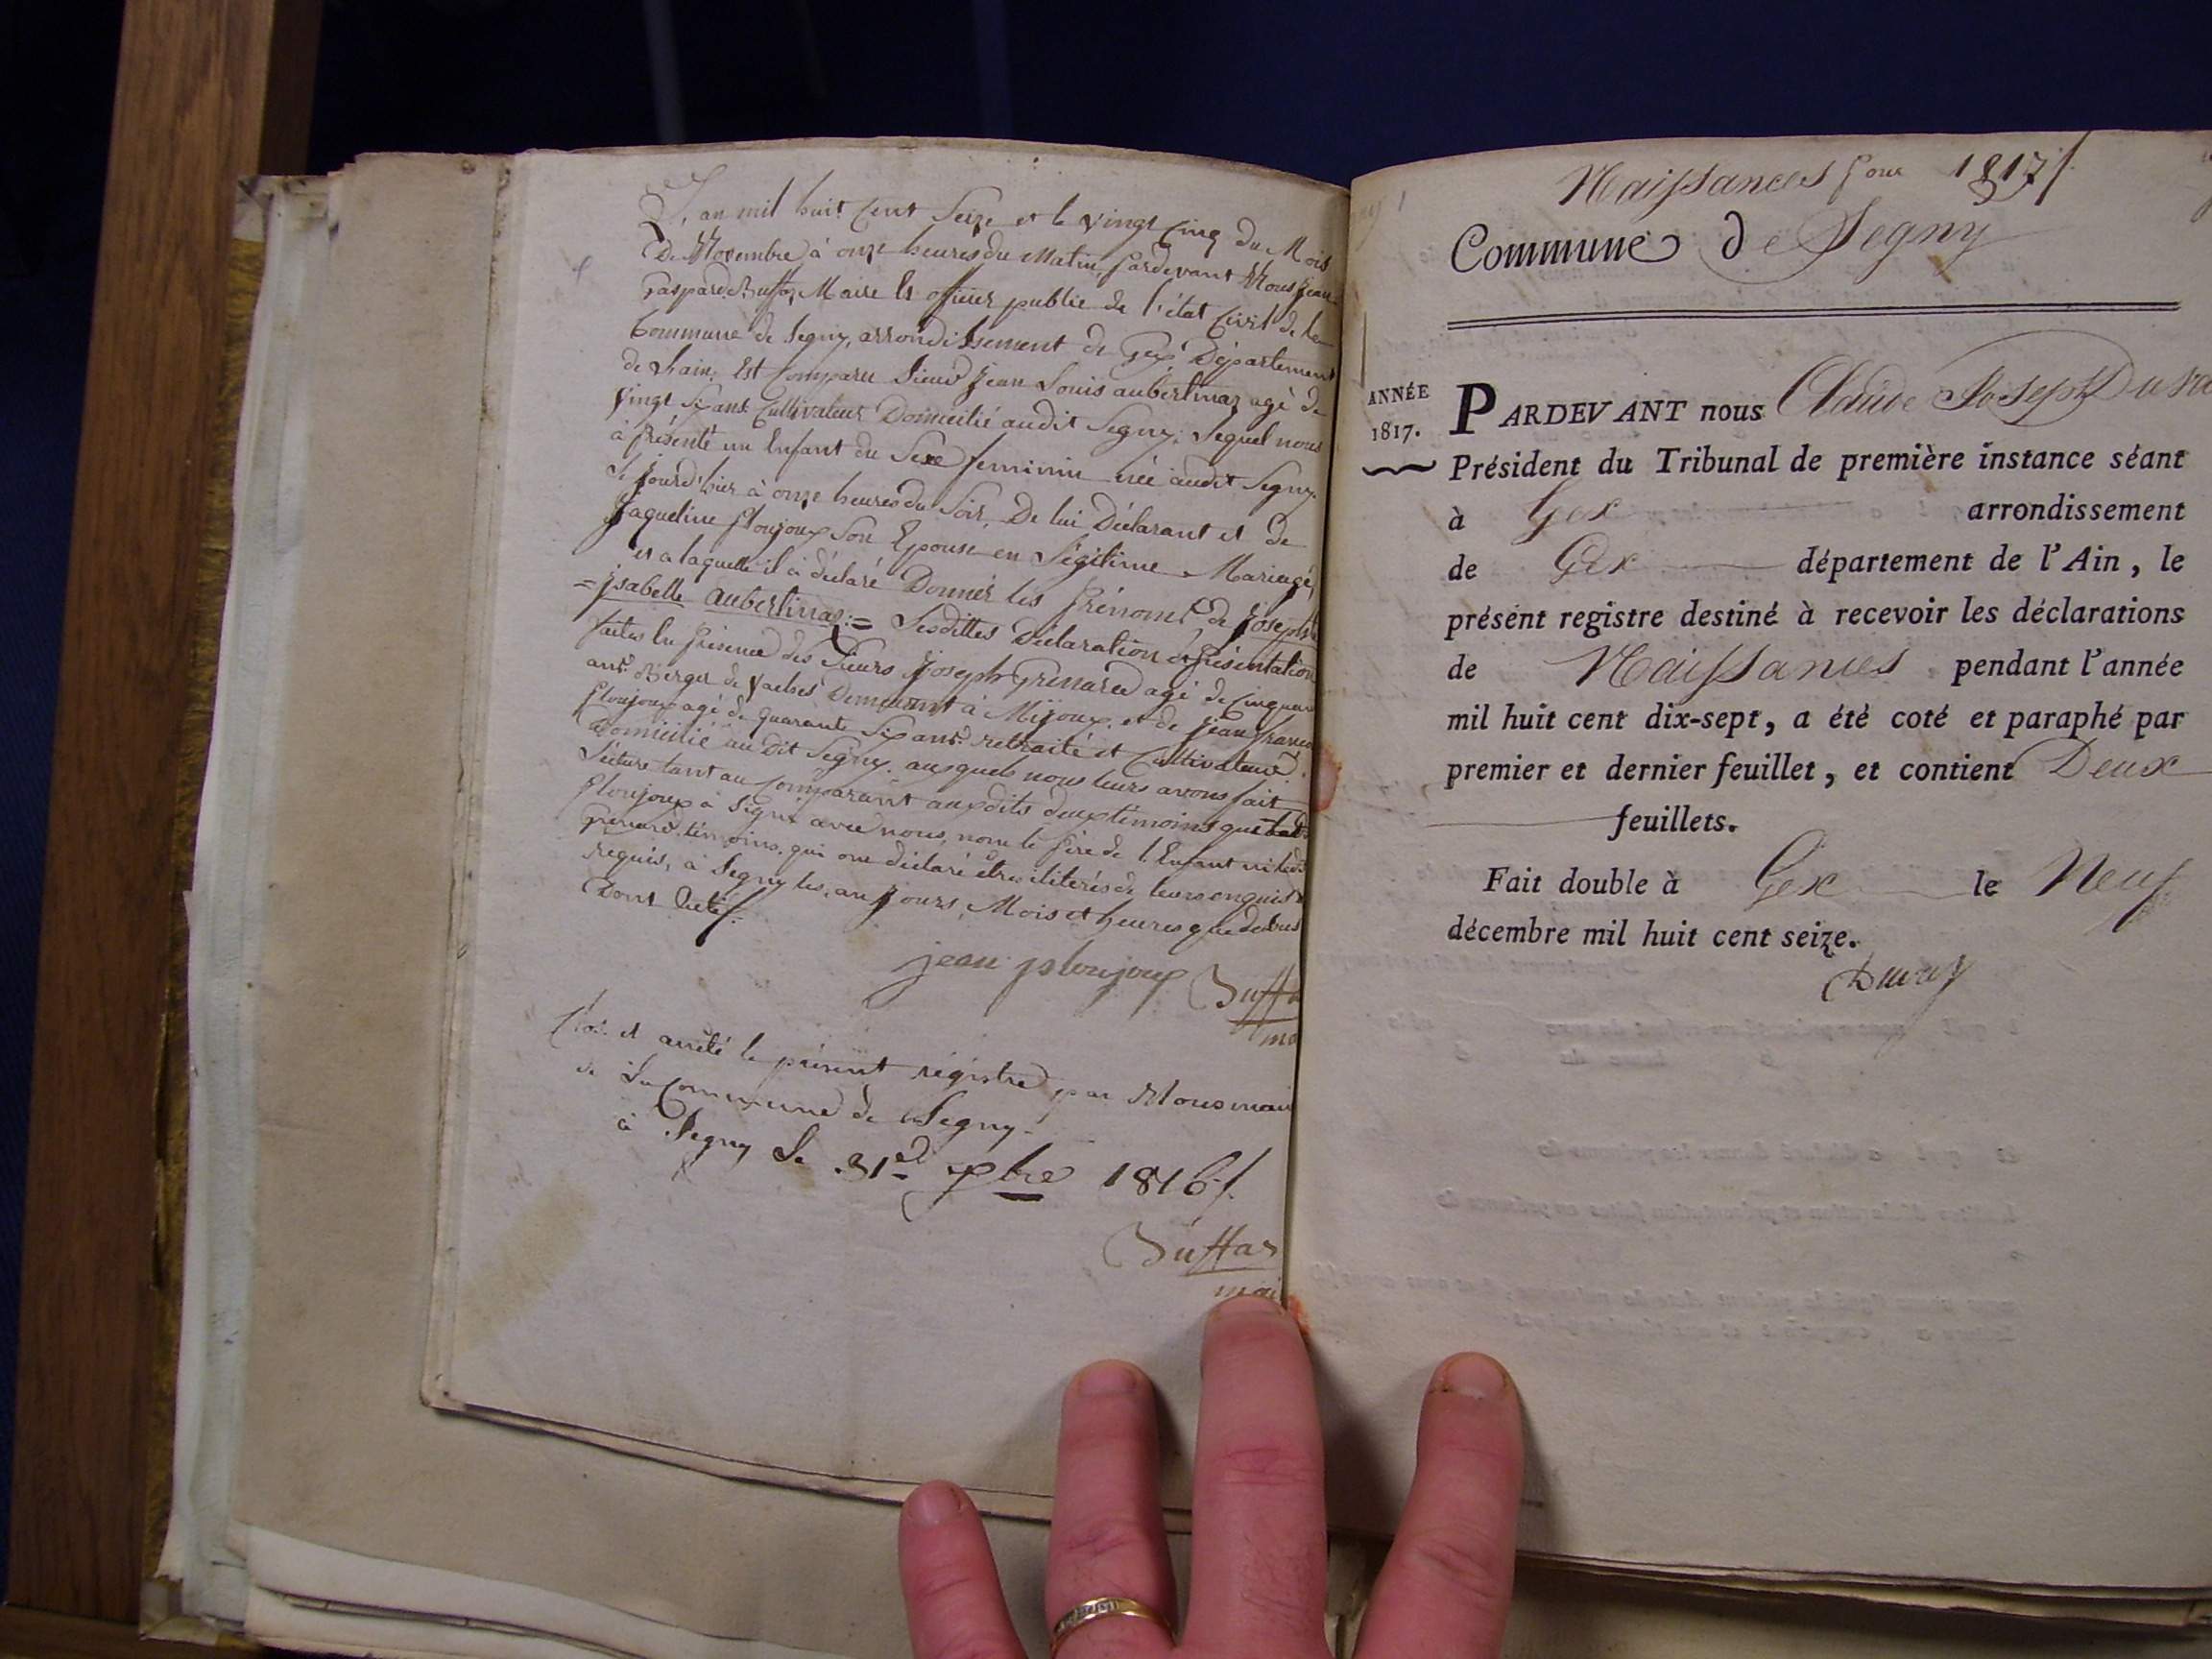 L'an mil huit Cent Seize et le vingt Cinq du Mois
De Novembre à onze heures du Matin, pardevant Nous Jean
Gaspard Buffaz Maire Et officier public de l'état Civil de la
Commune de Segny, arrondissement de Gex Département
de Lain, Est Comparu Sieur Jean Louis aubertinaz agé de
vingt Six ans Cultivateur Domicilié audit Segny, Lequel nous
à présenté un Enfant du Sexe feminin née audit Segny
le jourd'hier à onze heures du Soir, De lui Déclarant et de
Jaqueline Ploujoux Son Epouse en Légitime Mariage,
et a laquelle il à déclaré Donner les Prénoms de Joseph
=Jsabelle aubertinaz:= Lesdittes Déclaration et Présentation
faites En présence des Sieurs Joseph Grenard agé de Cinquan
ans Berger de Vaches Demeurant à Mijoux, et de Jean Franco
Ploujoux agé de Quarante Six ans retraité et Cultivateur
Domicilié au dit Segny. auxquels nous leurs avons fait
Lecture tant au Comparant aux dits deux témoins que
Ploujoux à Signé avec nous, non le Père de l'Enfant ni led
Grenard témoins, qui ont déclaré être iliterés de leurs enquis
requis, à Segny les, an Jours, Mois et heures que dessus
Dont acte
jean ploujoux Buffa
ma
Clos et arrêté le présent régistre par Nous mair
de La Commune de Segny
à Segny Le 31e xbre 1816
Buffaz
mai
Naissances Pour 1817
Commune de Segny
ANNÉE
1817.
PARDEVANT nous Claude Joseph Duva
Président du Tribunal de première instance séant
à Gex arrondissement
de Gex département de l'Ain, le
présent registre destiné à recevoir les déclarations
de Naissances pendant l'année
mil huit cent dix-sept, a été coté et paraphé par
premier et dernier feuillet, et contient Deux
feuillets.
Fait double à Gex le Neuf
décembre mil huit cent seize.